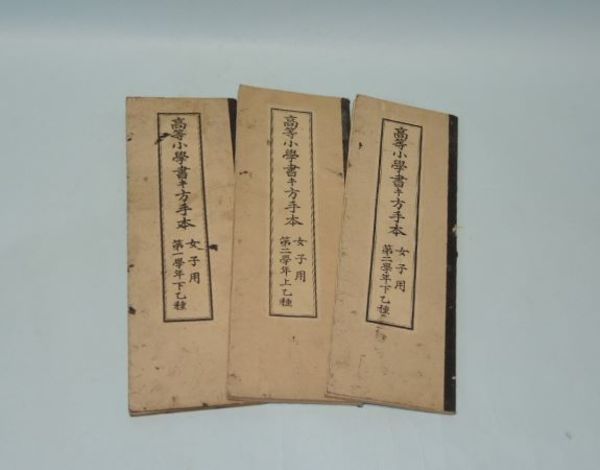 高等小學書キ方手本
女子用
第一學年下乙種
高等小學書キ方手本
女子用
第二學年上乙種
高等小學書キ方手本
女子用
第二學年下乙種